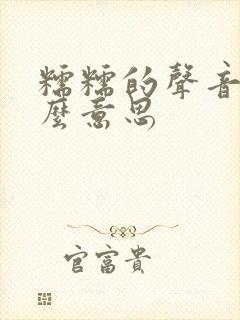 糯糯的聲音
麼意思
官富貴